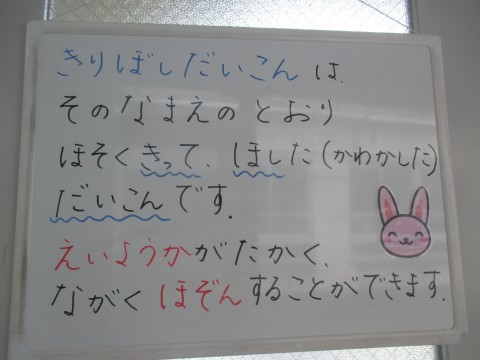 きりぼしだいこんは、
そのなまえのとおり
ほそくきって、ほした(かわかした)
だいこんです。
えいようかがたかく、
ながくほぞんすることができます。